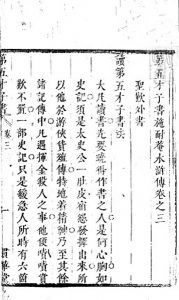 第五才子書施耐菴水滸傳卷之三
聖歎外書
讀第五才子書法
大凡讀書先要曉得作書之人是何心胸如
史記須是太史公一肚皮宿怨發揮出來所
以他於游俠貨殖傳特地着精神乃至其餘
諸記傳中凡遇揮金殺人之事他便嘖嘖賞
歎不置一部史記只是緩急人所時有六箇
第五才子書
卷三